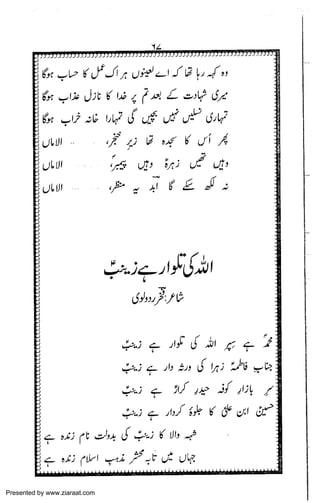 ۶۷
وہ کہہ رہا تھا کر اے لعینوں ہر اک عمل کا حساب ہوگا
میری شہادت کے بعد تم پر خدا کا نازل عذاب ہوگا
تمہاری نسلیں نہیں بچیں گی تمہارا خانہ خراب ہوگا
پھر اُس کا سجدہ تھا زیرِ خنجر، .. الاماں
وہیں تھیں زہرہؑ وہیں پیمبرؐ، الاماں
نہ لکھ سکے گا یہ منظر، الاماں
اللہ کی تلوار ہے زینبؑ
شاعر: ردولوی
محمدؐ ہے سپر اللہ کی تلوار ہے زینبؑ
جنابِ فاطمہؑ زہرا کی ورثہ دار ہے زینبؑ
سرِ بازارِ کوفہ حیدرِ کرارؑ ہے زینبؑ
حسینؑ ابنِ علیؑ کا جلوۂ کردار ہے زینبؑ
شہہِ والا کا زینبؑ کی بدولت نام زندہ ہے
جہاں میں تابہ محشر مذہبِ اسلام زندہ ہے
Presented by www.ziaraat.com